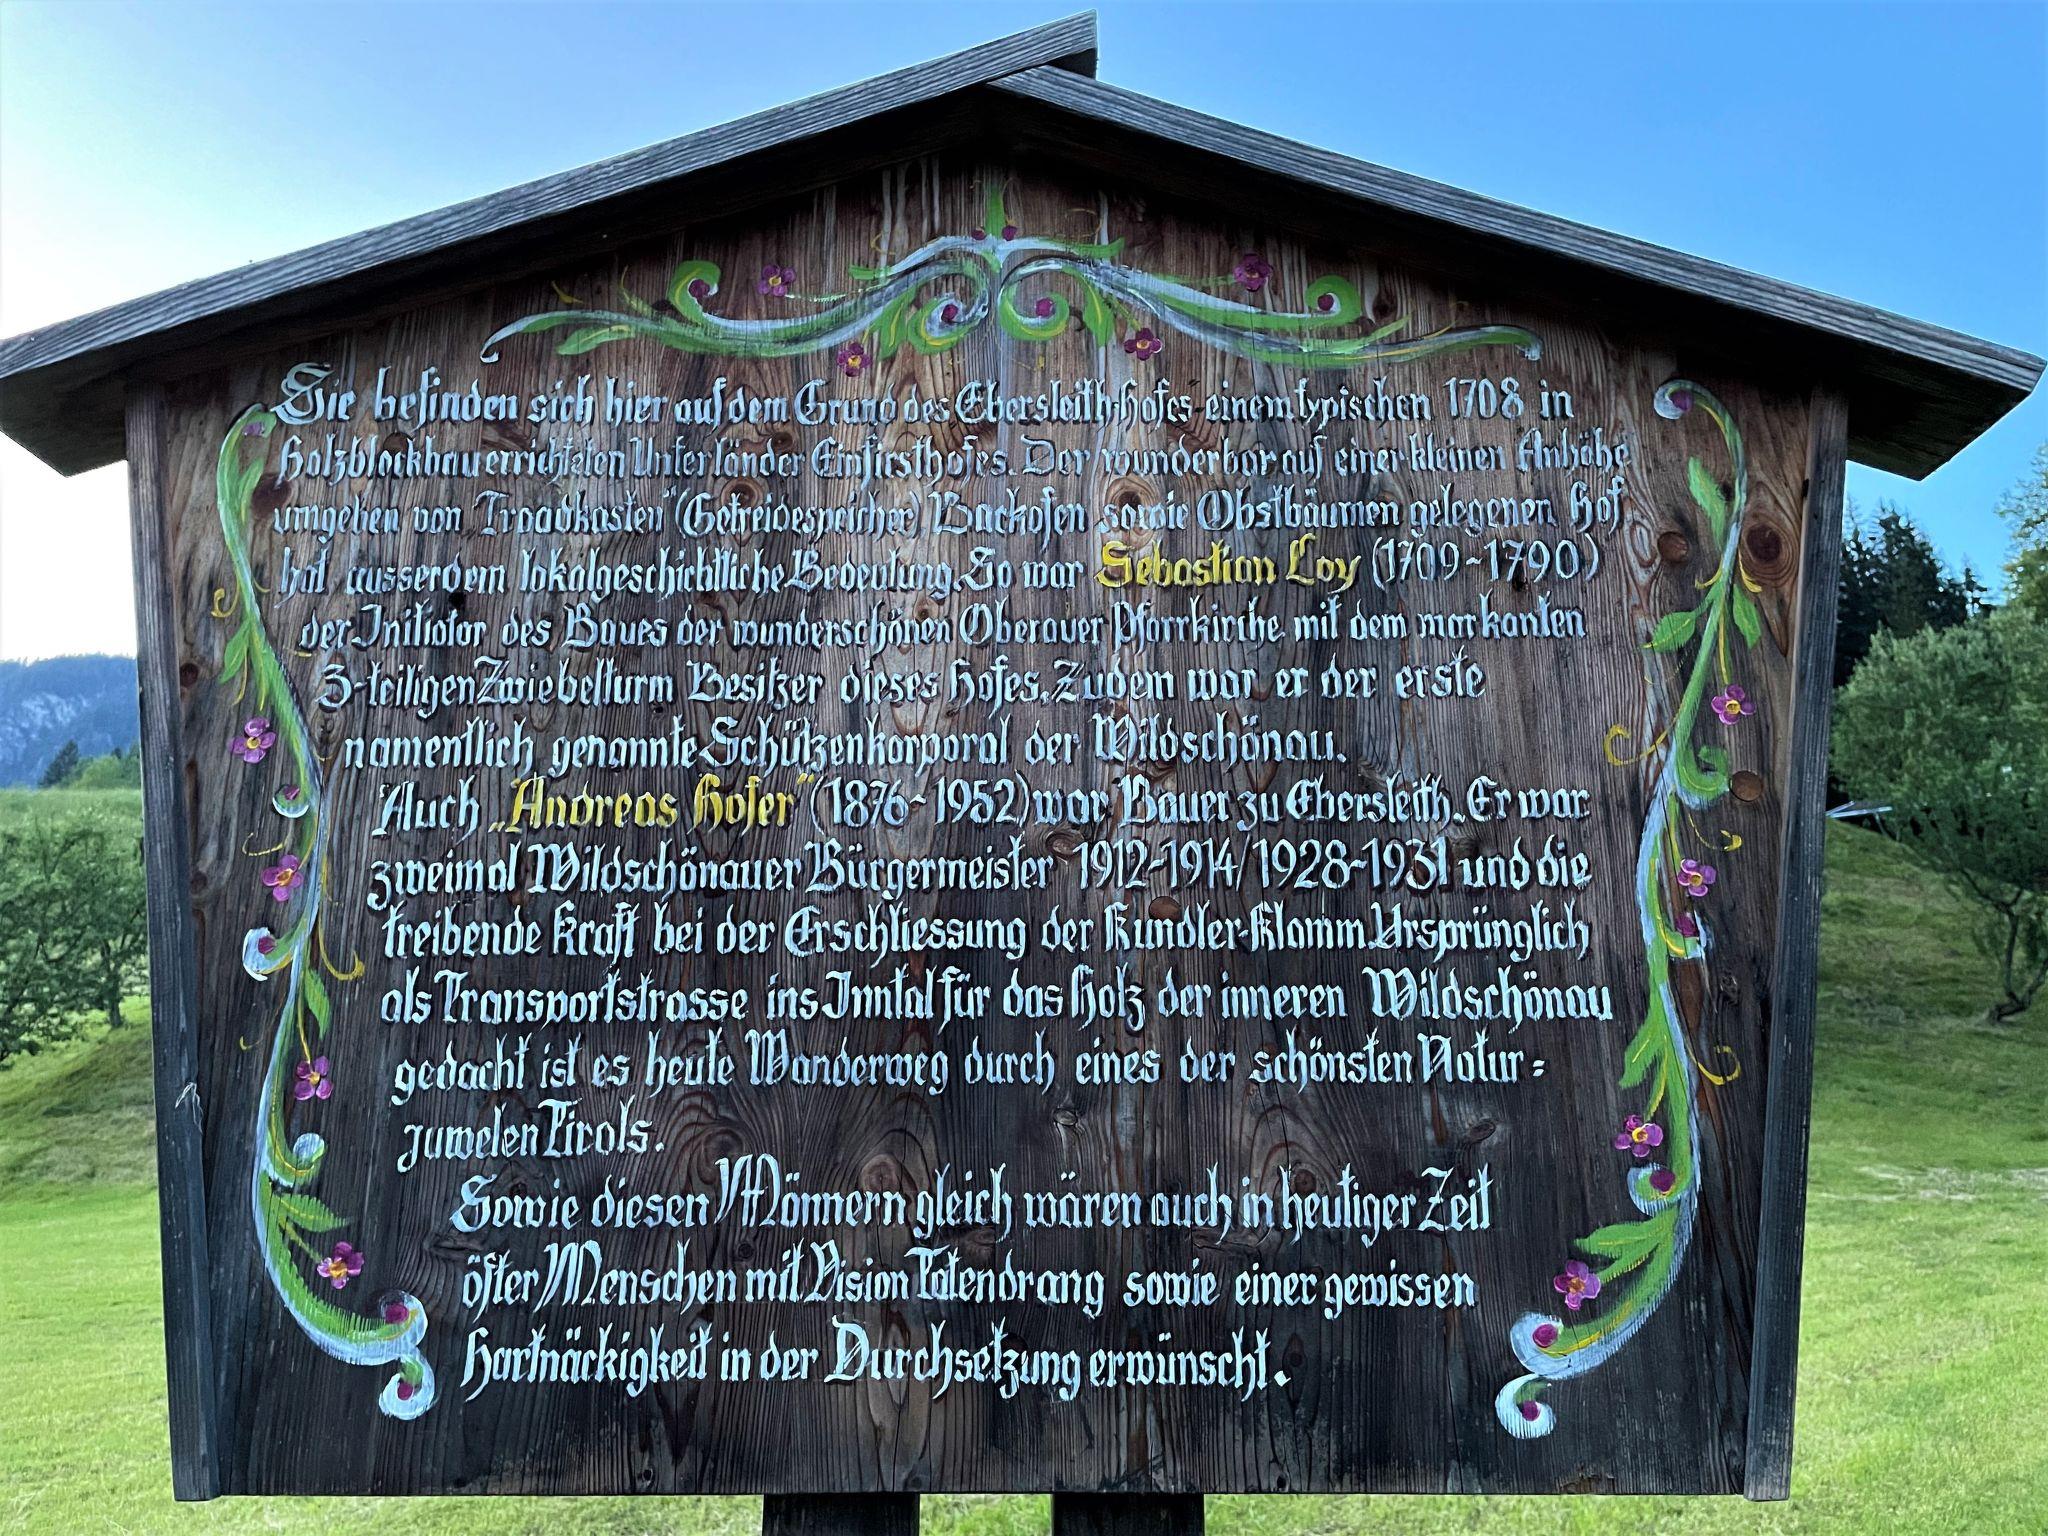 Sie befinden sich hier auf dem Grund des Ebersleith-Hofes - einem typischen 1708 in
Holzblockbau errichteten Unterländer Einfirsthofes. Der wunderbar auf einer kleinen Anhöhe
umgeben von "Troadkasten" (Getreidespeicher), Backofen sowie Obstbäumen gelegenen Hof
hat ausserdem lokalgeschichtliche Bedeutung. So war Sebastian Loy (1709-1790)
der Initiator des Baues der wunderschönen Oberauer Pfarrkirche mit dem markanten
3-teiligen Zwiebelturm Besitzer dieses Hofes. Zudem war er der erste
namentlich genannte Schützenkorporal der Wildschönau.
Auch „Andreas Hofer" (1876-1952) war Bauer zu Ebersleith. Er war
zweimal Wildschönauer Bürgermeister 1912-1914/1928-1931 und die
treibende Kraft bei der Erschliessung der Kundler-Klamm. Ursprünglich
als Transportstrasse ins Inntal für das Holz der inneren Wildschönau
gedacht ist es heute Wanderweg durch eines der schönsten Natur=
juwelen Tirols.
Sowie diesen Männern gleich wären auch in heutiger Zeit
öfter Menschen mit Vision Tatendrang sowie einer gewissen
Hartnäckigkeit in der Durchsetzung erwünscht.